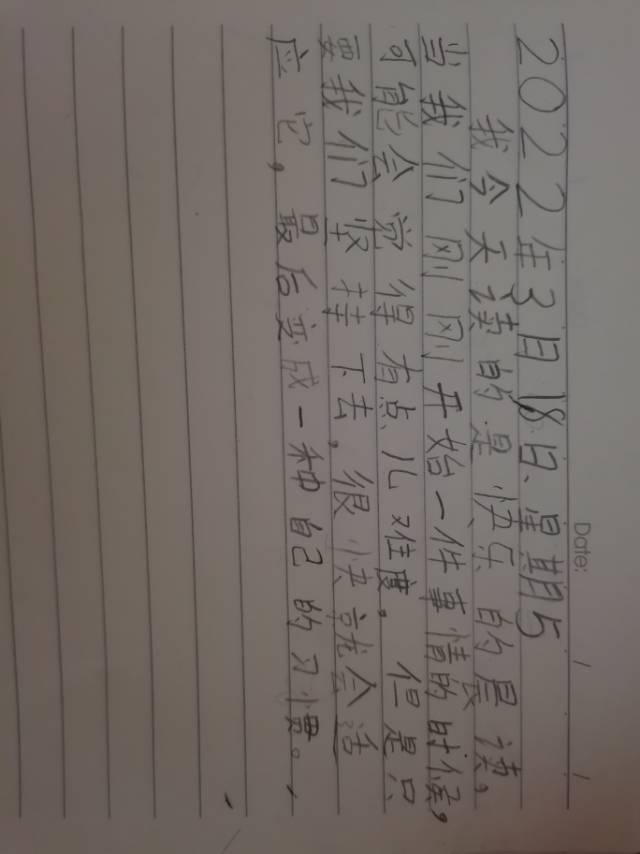 Date: / /
2022年3月18日、星期5
我今天读的是快乐的晨读,
当我们刚刚开始一件事情的时候,
可能会觉得有点儿难度。但是只
要我们坚持下去,很快就会活
应它,最后变成一种自己的习惯。